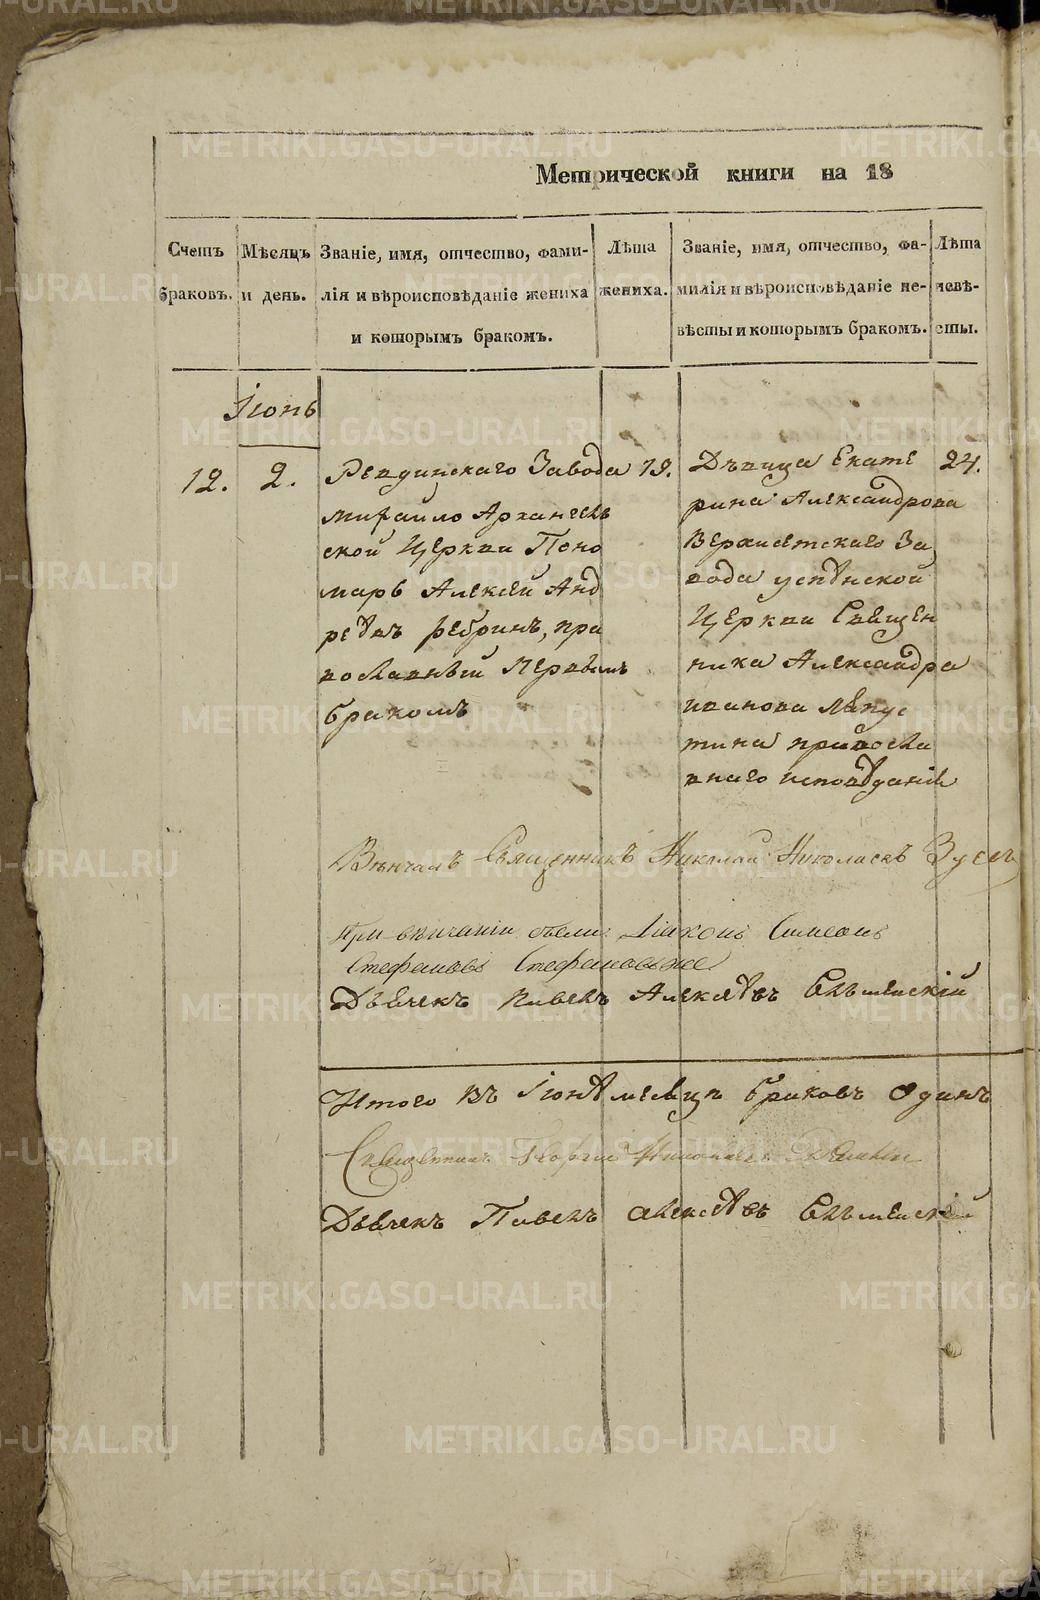 Метрической книги на 18
Счетъ браковъ.
Мѣсяцъ и день.
Званіе, имя, отчество, фами-
лія и вѣроисповѣданіе жениха
и которымъ бракомъ.
Лѣта
жениха.
Званіе, имя, отчество, фа-
милія и вѣроисповѣданіе не-
вѣсты и которымъ бракомъ.
Лѣта
невѣ-
сты.
Іюнь
12. 2.
Ревдинскаго Завода
Михаило Архангель
ской Церкви Поно
марь Алексей Анд
реѣвъ Ребринъ, пра
вославный первымъ
бракомъ
19.
Дѣвица Екате
рина Александрова
Верхисетскаго За
вода успѣнской
Церкви Священ
ника Александра
иванова
тина правосла
внаго исповѣданія
24.
Вѣнчалъ Священникъ Николай Николаевъ
При вѣнчаніи были: Діаконъ Симеонъ
Стефановъ
Дьячекъ Павелъ Алексѣвъ
Итого въ Іюнѣ месяцѣ браковъ Одинъ
Священникъ Георгій
Дьячекъ Павелъ Алексѣвъ
METRIKI.GASO-URAL.RU